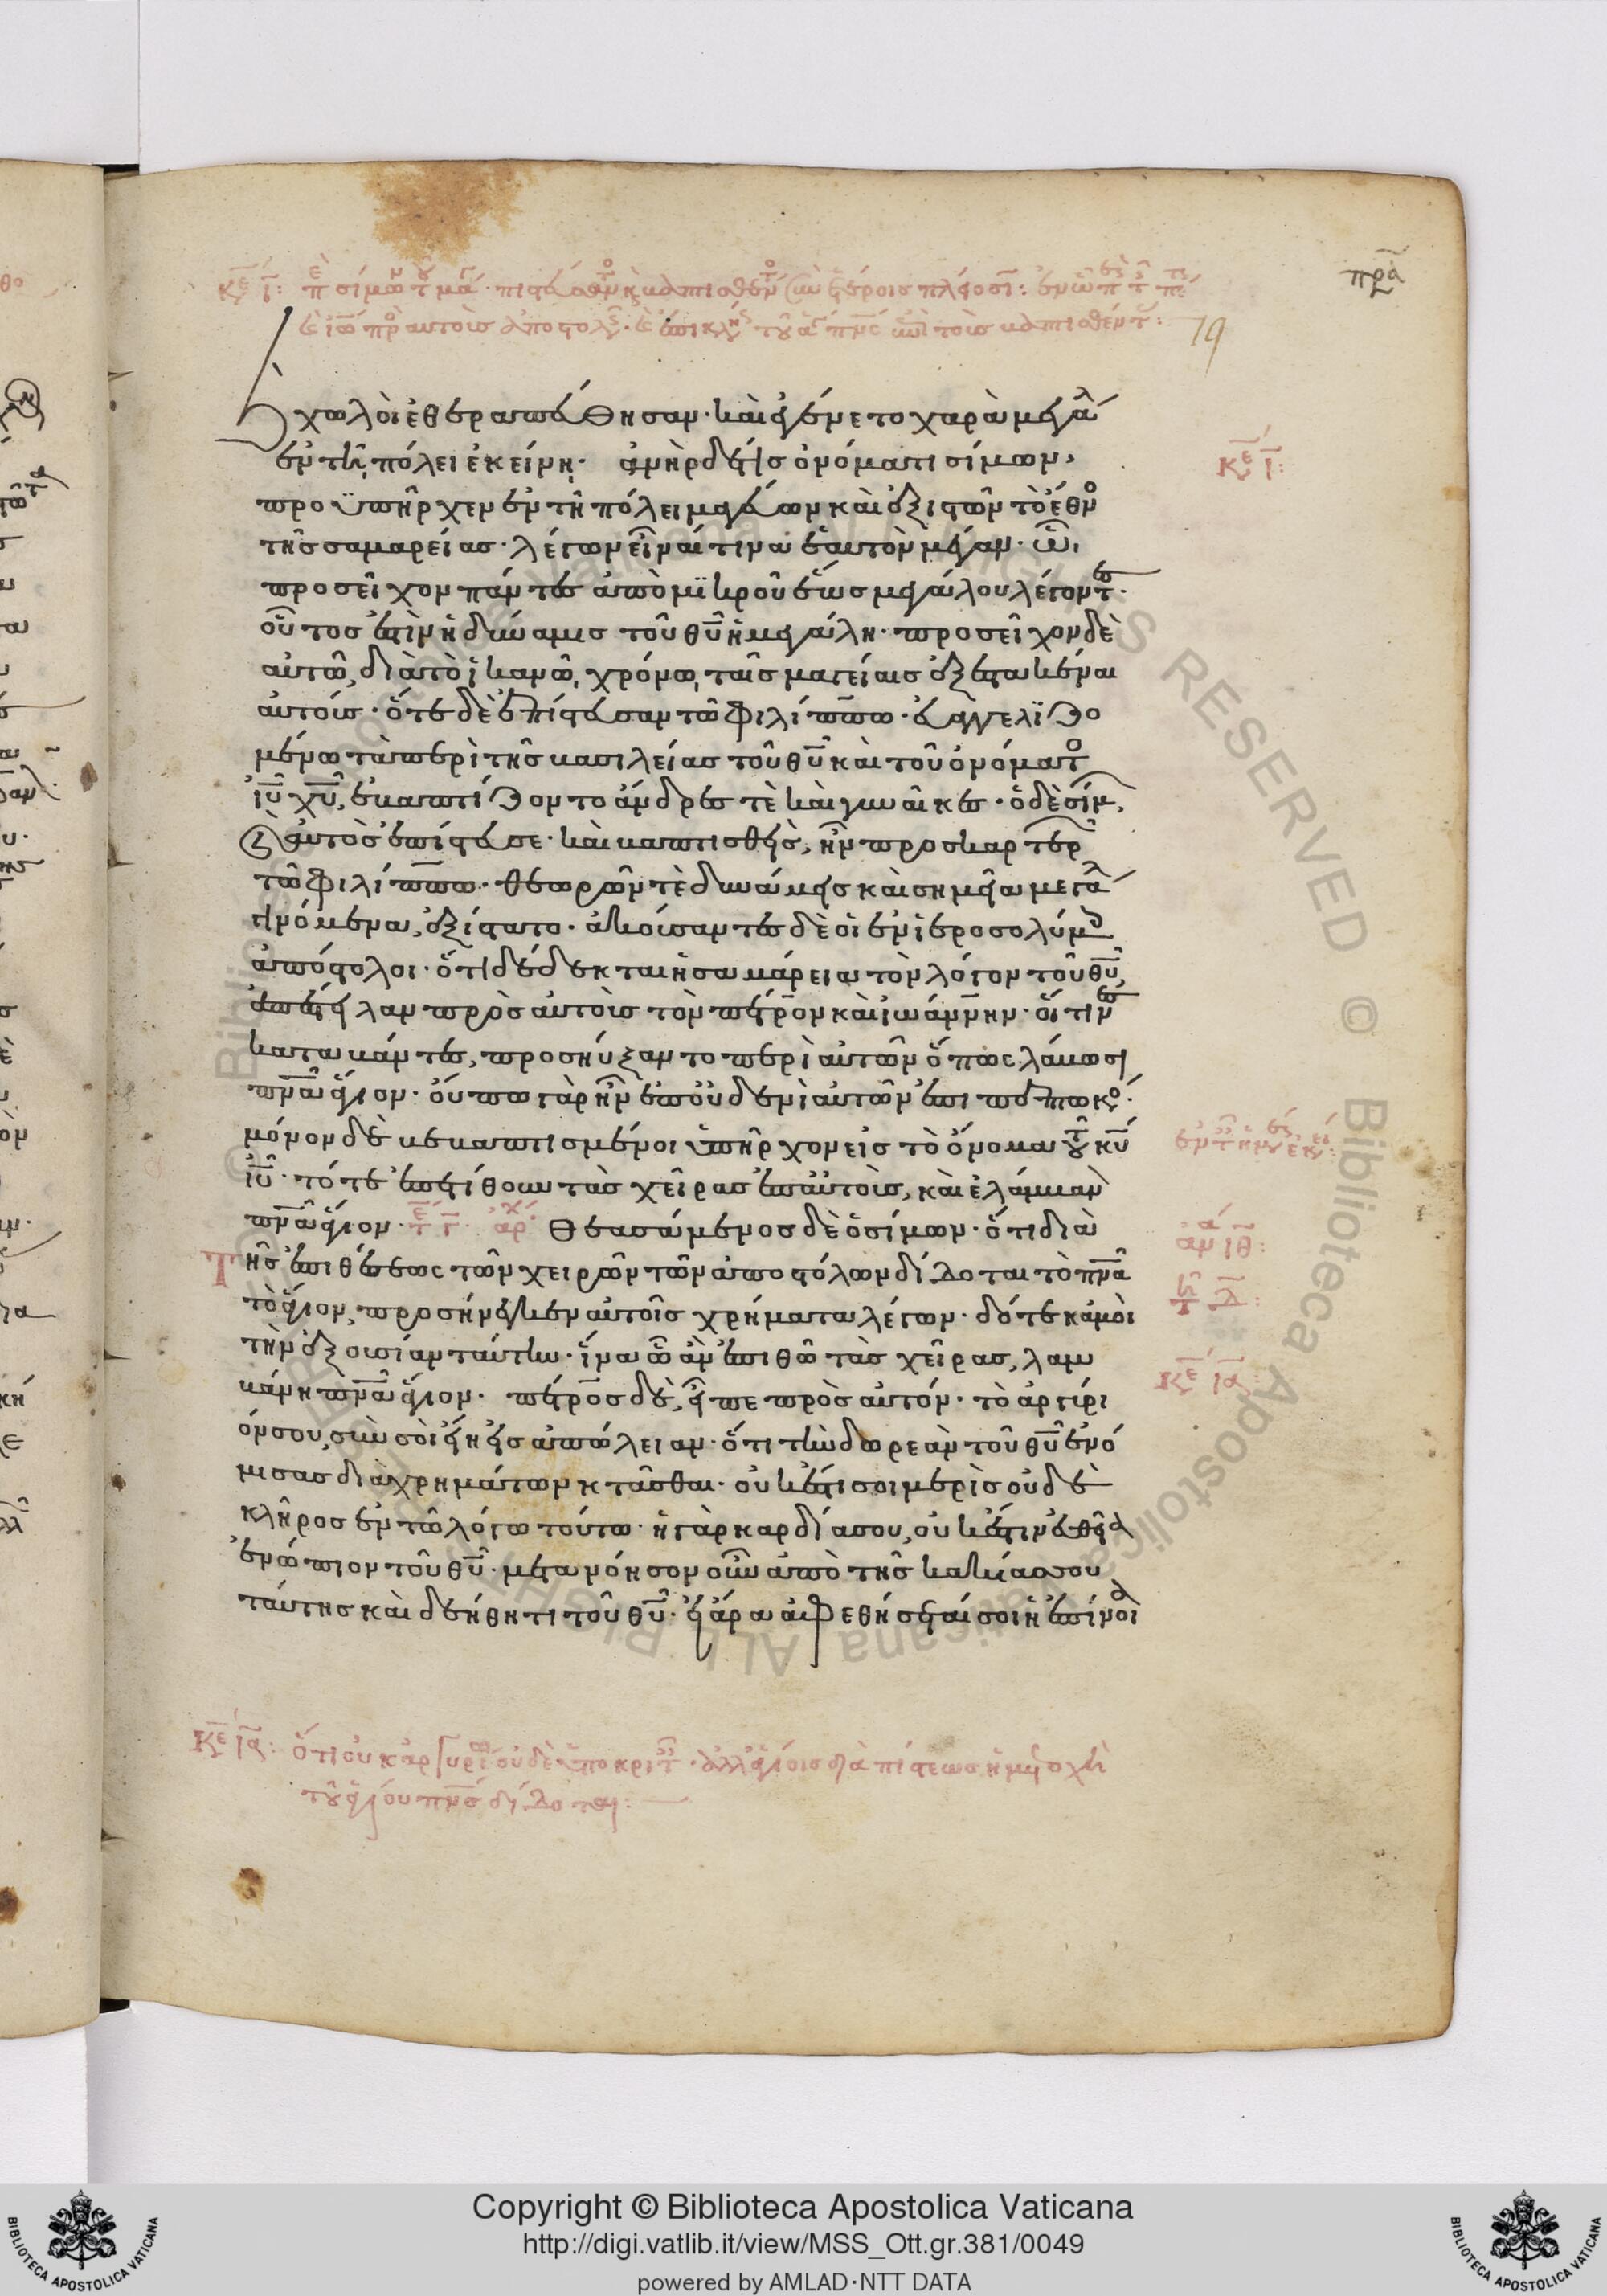 κε ι:
πρα
19
χωλοὶ ἐθεραπεύθησαν· καὶ ἐγένετο χαρὰ μεγάλ
ἐν τῆ πόλει ἐκείνη· ἀνὴρ δέ τις ὀνόματι σίμων,
προϋπῆρχεν ἐν τῆ πόλει μαγεύων καὶ ἐξιστῶν τὸ ἔθνο
τῆς σαμαρείας· λέγων εἶναί τινα ἑαυτὸν μέγαν· ὧ,
προσεῖχον πάντες ἀπὸ μϊκροῦ ἕως μεγάλου λέγοντες·
οὗτος ἐστὶν ἡ δύναμις τοῦ θυ ἡ μεγάλη· προσεῖχον δὲ
αὐτῶ, διὰ τὸ ἱκανῶ χρόνω, ταῖς μαγείαις ἐξεστακέναι
αὐτούς· ὅτε δὲ ἐπίστευσαν τῶ φιλίππω· εὐαγγελϊζο
μένω τὰ περὶ τῆς βασιλείας τοῦ θυ καὶ τοῦ ὀνόματο
ἰυ χυ, ἐβαπτίζοντο ἄνδρες τὲ καὶ γυναῖκες· ὁ δὲ σίμ,
καὶ αὐτὸς ἐπίστευσε· καὶ βαπτισθεὶς, ἦν προσκαρτερ
τῶ φιλίππω· θεωρῶν τὲ δυνάμεις καὶ σημεῖα μεγάλ
γινόμενα, ἐξίστατο· ἀκούσαντες δὲ οἱ ἐν ἱεροσολύμ
ἀπόστολοι· ὅτι δέδεκται ἡ σαμάρεια τὸν λόγον τοῦ θυ,
ἀπέστειλαν πρὸς αὐτοὺς τὸν πέτρον καὶ ἰωάννην· οἵτινες
καταβάντες, προσηύξαντο περὶ αὐτῶν ὅπως λάβωσι
πνα ἅγιον· οὔπω γὰρ ἦν ἐπ οὐδενὶ αὐτῶν ἐπιπεπτωκό·
μόνον δὲ βεβαπτισμένοι ὑπῆρχον εἰς τὸ ὄνομα τοῦ κυ
ἰυ· τότε ἐπετίθουν τὰς χεῖρας ἐπ αὐτοὺς, καὶ ἐλάμβαν
πνα ἅγιον· τε γ· αρχ θεασάμενος δὲ ὁ σίμων· ὅτι διὰ
Τῆς ἐπιθέσεως τῶν χειρῶν τῶν ἀποστόλων δίδοται τὸ πνα
τὸ ἅγιον, προσήνεγκεν αὐτοῖς χρήματα λέγων· δότε κἀμοὶ
τὴν ἐξουσίαν ταύτην· ἵνα ὧ ἂν ἐπιθῶ τὰς χεῖρας, λαμ
βάνη πνα ἅγιον· πέτρος δὲ, εἶπε πρὸς αὐτόν· τὸ ἀργύρι
όν σου, σὺν σοὶ εἴη εἰς ἀπώλειαν· ὅτι τὴν δωρεὰν τοῦ θυ ἐνό
μισας διὰ χρημάτων κτᾶσθαι· οὐκ ἔστι σοι μερὶς οὐδὲ
κλῆρος ἐν τῶ λόγω τούτω· ἡ γὰρ καρδία σου, οὐκ ἔστιν εὐθεῖα
ἐνώπιον τοῦ θυ· μετανόησον οὖν ἀπὸ τῆς κακίας σου
ταύτης καὶ δεήθητι τοῦ θυ· εἰ ἄρα ἀφεθήσεταί σοι ἡ ἐπίνοι
κε ια
κε ια: ὅτι οὐκ ἀργυρί οὐδὲ ὑποκριτ· ἀλλ ἁγίοις διὰ πίστεως ἡ μετοχὴ
τοῦ ἁγίου πνς δίδοται:
Copyright © Biblioteca Apostolica Vaticana
http://digi.vatlib.it/view/MSS_Ott.gr.381/0049
powered by AMLAD·NTT DATA
BIBLIOTECA APOSTOLICA VATICANA
BIBLIOTECA APOSTOLICA VATICANA